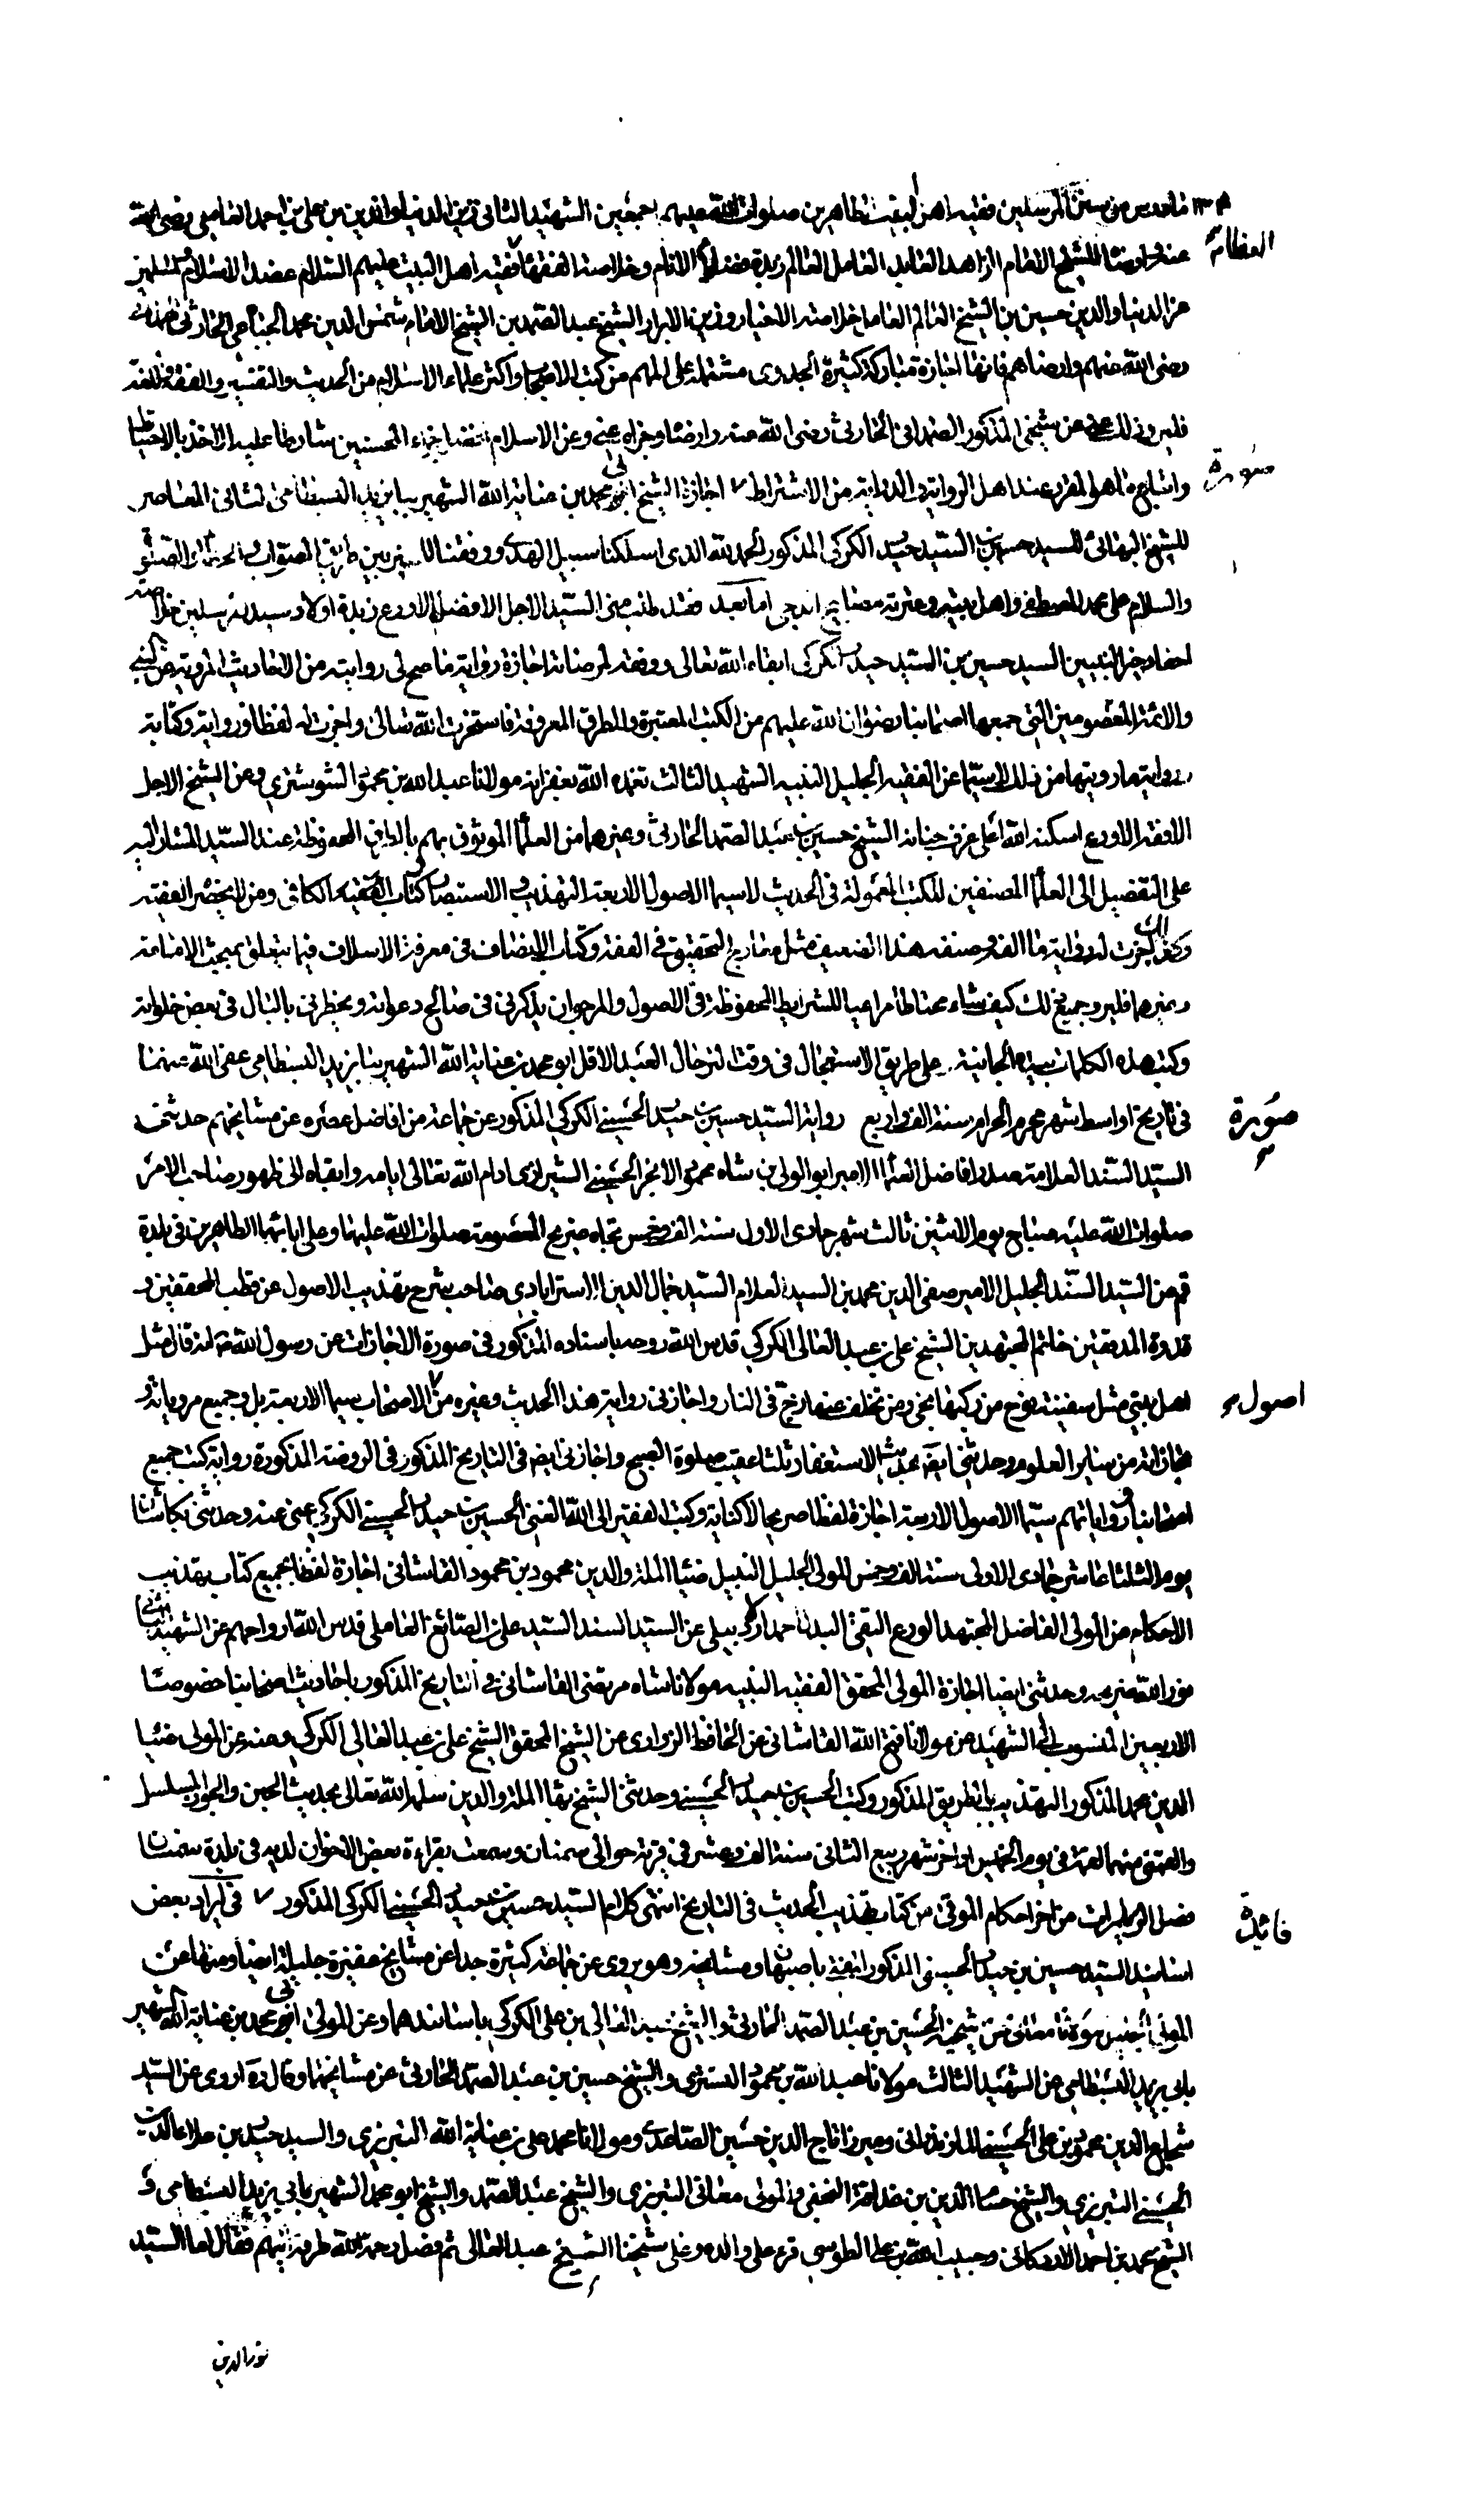 من سنن المرسلين فقيه اهل البيت الطاهرين صلوات الله عليهم اجمعين الشهيد الثاني زين الدنيا والدين بن علي بن احمد العاملي رضى الله
العظام
عنه وارضاه للشيخ الامام الزاهد العابد العامل العالم زبدة فضلاء الانام وخلاصة الفقهاء فقيه اهل البيت عليهم السلام عضد الاسلام والمسلمين
عز الدنيا والدين حسين بن الشيخ العالم العامل خلاصة الاخيار وزين الابرار الشيخ عبد الصمد بن الشيخ الامام شمس الدين محمد الجباعي الحارثي الهمداني
رضى الله عنهم وارضاهم فانها اجازة مباركة كثيرة الجدوى مشتملة على المهم من كتب الاصحاب واكثر علماء الاسلام من الحديث والتفسير والفقه واللغة
فليرو ذلك عني عن شيخي المذكور الهمداني الحارثي رضى الله عنه وارضاه وجزاه عني وعن الاسلام افضل جزاء المحسنين شارطا عليه الاخذ بالاحتياط
صورة
واتباع ما هو المقرر عند اهل الرواية والدراية من الاشتراط اجازة الشيخ ابو محمد بن عناية الله الشهير ببايزيد البسطامي الثاني المعاصر
للشيخ البهائي للسيد حسين بن السيد حيدر الكركي المذكور الحمد لله الذى اسلكنا سبيل الهدى ووفقنا للتمييز بين طريقي الصواب والخطاء والصلوة
والسلام على محمد المصطفى واهل بيته وعترته مصابيح الدجى اما بعد فقد طلب مني السيد الاجل الافضل الاورع زبدة اولاد سيد المرسلين خلاصة
احفاد خير النبيين السيد حسين بن السيد حيدر الكركي ابقاه الله تعالى ووفقه لمرضاته اجازة رواية ما صح لي روايته من الاحاديث المروية عن النبي
والائمة المعصومين التي جمعها اصحابنا رضوان الله عليهم من الكتب المعتبرة والطرق المعروفة فاستخرت الله تعالى واجزت له لفظا ورواية وكتابة
رواية ما رويتها من ذلك لا سيما عن الفقيه الجليل النبيه الشهيد الثالث تغمده الله بغفرانه مولانا عبد الله بن محمود الشوشتري وعن الشيخ الاجل
الافقه الاورع اسكنه الله اعلى غرف جنانه الشيخ حسين بن عبد الصمد الحارثي وغيرهما من العلماء الموثوق بهم بالطرق المحفوظة عند السيد المشار اليه
على التفصيل الى العلماء المصنفين للكتب المعمولة في الحديث لا سيما الاصول الاربعة التهذيب والاستبصار وكتاب الفقيه والكافي ومن لا يحضره الفقيه
وكذلك اجزت له رواية ما الفه وصنفه هذا الضعيف مثل معارج التحقيق في الفقه وكتاب الانصاف في معرفة الاسلاف فيما يتعلق بمبحث الامامة
وغيرهما فليرو جميع ذلك كيف شاء محتاطا مراعيا للشرايط المحفوظة في الاصول والمرجو ان يذكرني في صالح دعواته ويخطرني بالبال في بعض خلواته
وكتب هذه الكلمات بيده الجانية على طريق الاستعجال في وقت الترحال العبد الاقل ابو محمد بن عناية الله الشهير ببايزيد البسطامي عفى الله عنهما
صورة
في تاريخ اواسط شهر محرم الحرام سنة الف واربع رواية السيد حسين بن حيدر الحسيني الكركي المذكور عن جماعة من افاضل عصره عن مشايخهم حدثني
السيد السند العلامة صدر افاضل العلماء الامير ابو الولي بن شاه محمود الانجو الحسيني الشيرازي ادام الله تعالى ايامه وابقاه الى ظهور صاحب الامر
صلوات الله عليه صباح يوم الاثنين ثالث شهر جمادى الاول سنة الف وخمس تجاه ضريح المعصومة صلوات الله عليها وعلى ابائها الطاهرين في بلدة
قم عن السيد السند الجليل الامير صفي الدين محمد بن السيد العلام السيد جمال الدين الاسترابادي صاحب شرح تهذيب الاصول عن قطب المحققين و
قدوة المدققين خاتم المجتهدين الشيخ علي بن عبد العالي الكركي قدس الله روحه باسناده المذكور في صورة الاجازات عن رسول الله ص انه قال مثل
اصول
اهل بيتي مثل سفينة نوح من ركبها نجى ومن تخلف عنها زج في النار واجازني رواية هذا الحديث وغيره من الاصحاب سيما الاربعة بل وجميع مروياته و
مجازاته من ساير العلوم وحدثني ايضا بحديث الاستغفار ثلثا عقيب صلوة الصبح واجازني ايضا في التاريخ المذكور في الروضة المذكورة رواية كتب جميع
اصحابنا ورواياتهم سيما الاصول الاربعة اجازة لفظا صريحا لا كناية وكتب الفقير الى الله الغني الحسين بن حيدر الحسيني الكركي عفي عنه وحدثني بكاشان
يوم الثلثا عاشر جمادى الاولى سنة الف وخمس المولى الجليل النبيل ضياء الملة والدين محمود بن محمود القاشاني اجازة لفظا بجميع كتاب تهذيب
الاحكام عن المولى الفاضل المجتهد الورع التقي البدل احمد اردبيلي عن السيد السند السيد علي بن الصائغ العاملي قدس الله ارواحهم عن الشهيد الثاني
نور الله ضريحه وحدثني ايضا اجازة المولى المحقق الفقيه النبيه مولانا شاه مرتضى القاشاني في التاريخ المذكور باحاديث اصحابنا خصوصا
الاربعين المنسوب الى الشهيد عن مولانا فتح الله القاشاني عن الحافظ الزواري عن الشيخ المحقق الشيخ علي بن عبد العالي الكركي وعنه عن المولى ضياء
الدين محمد المذكور التهذيب بالطريق المذكور وكتب الحسين بن حيدر الحسيني وحدثني الشيخ بهاء الملة والدين سلمه الله تعالى بحديث الجبن والجوز المسلسل
والعمق منهما العمة في يوم الخميس اواخر شهر ربيع الثاني سنة الف وعشر في قرية حوالي سمنان وسمعت بقراءة بعض الاخوان لديه في بلدة سمنان
فائدة
فصل الزيارات من اخر احكام الموتى من كتاب تهذيب الحديث في التاريخ انتهى كلام السيد حسين بن حيدر الحسيني الكركي المذكور في ايراد بعض
اسانيد السيد حسين بن حيدر الحسيني المذكور المفتي باصبهان ومشايخه وهو يروي عن جماعة كثيرة جدا عن مشايخ غفيرة جليلة ايضا ومنها عن
المولى مولانا معاني عن شيخيه الحسين بن عبد الصمد الحارثي والشيخ عبد العالي بن علي الكركي باسانيدهما وعن المولى ابو محمد بن عناية الله الشهير
بابي يزيد البسطامي عن الشهيد الثالث مولانا عبد الله بن محمود التستري والشيخ حسين بن عبد الصمد الحارثي عن مشايخهما وقال ره اروي عن السيد
شجاع الدين محمود بن علي الحسيني المازندراني وميرزا تاج الدين حسين الصاعدي ومولانا محمد علي بن عناية الله التبريزي والسيد حيدر بن علاء الدين
الحسيني التبريزي والشيخ حسام الدين بن عذافة النجفي والمولى معاني التبريزي والشيخ عبد الصمد والشيخ ابو محمد الشهير بابي يزيد البسطامي و
الشيخ محمد بن احمد الاردكاني وحبيب الله بن علي الطوسي قرء على والده وعلى شيخنا الشيخ عبد العالي ثم فصل رحمه الله طرقه اليهم فقال اما السيد
نور الدين